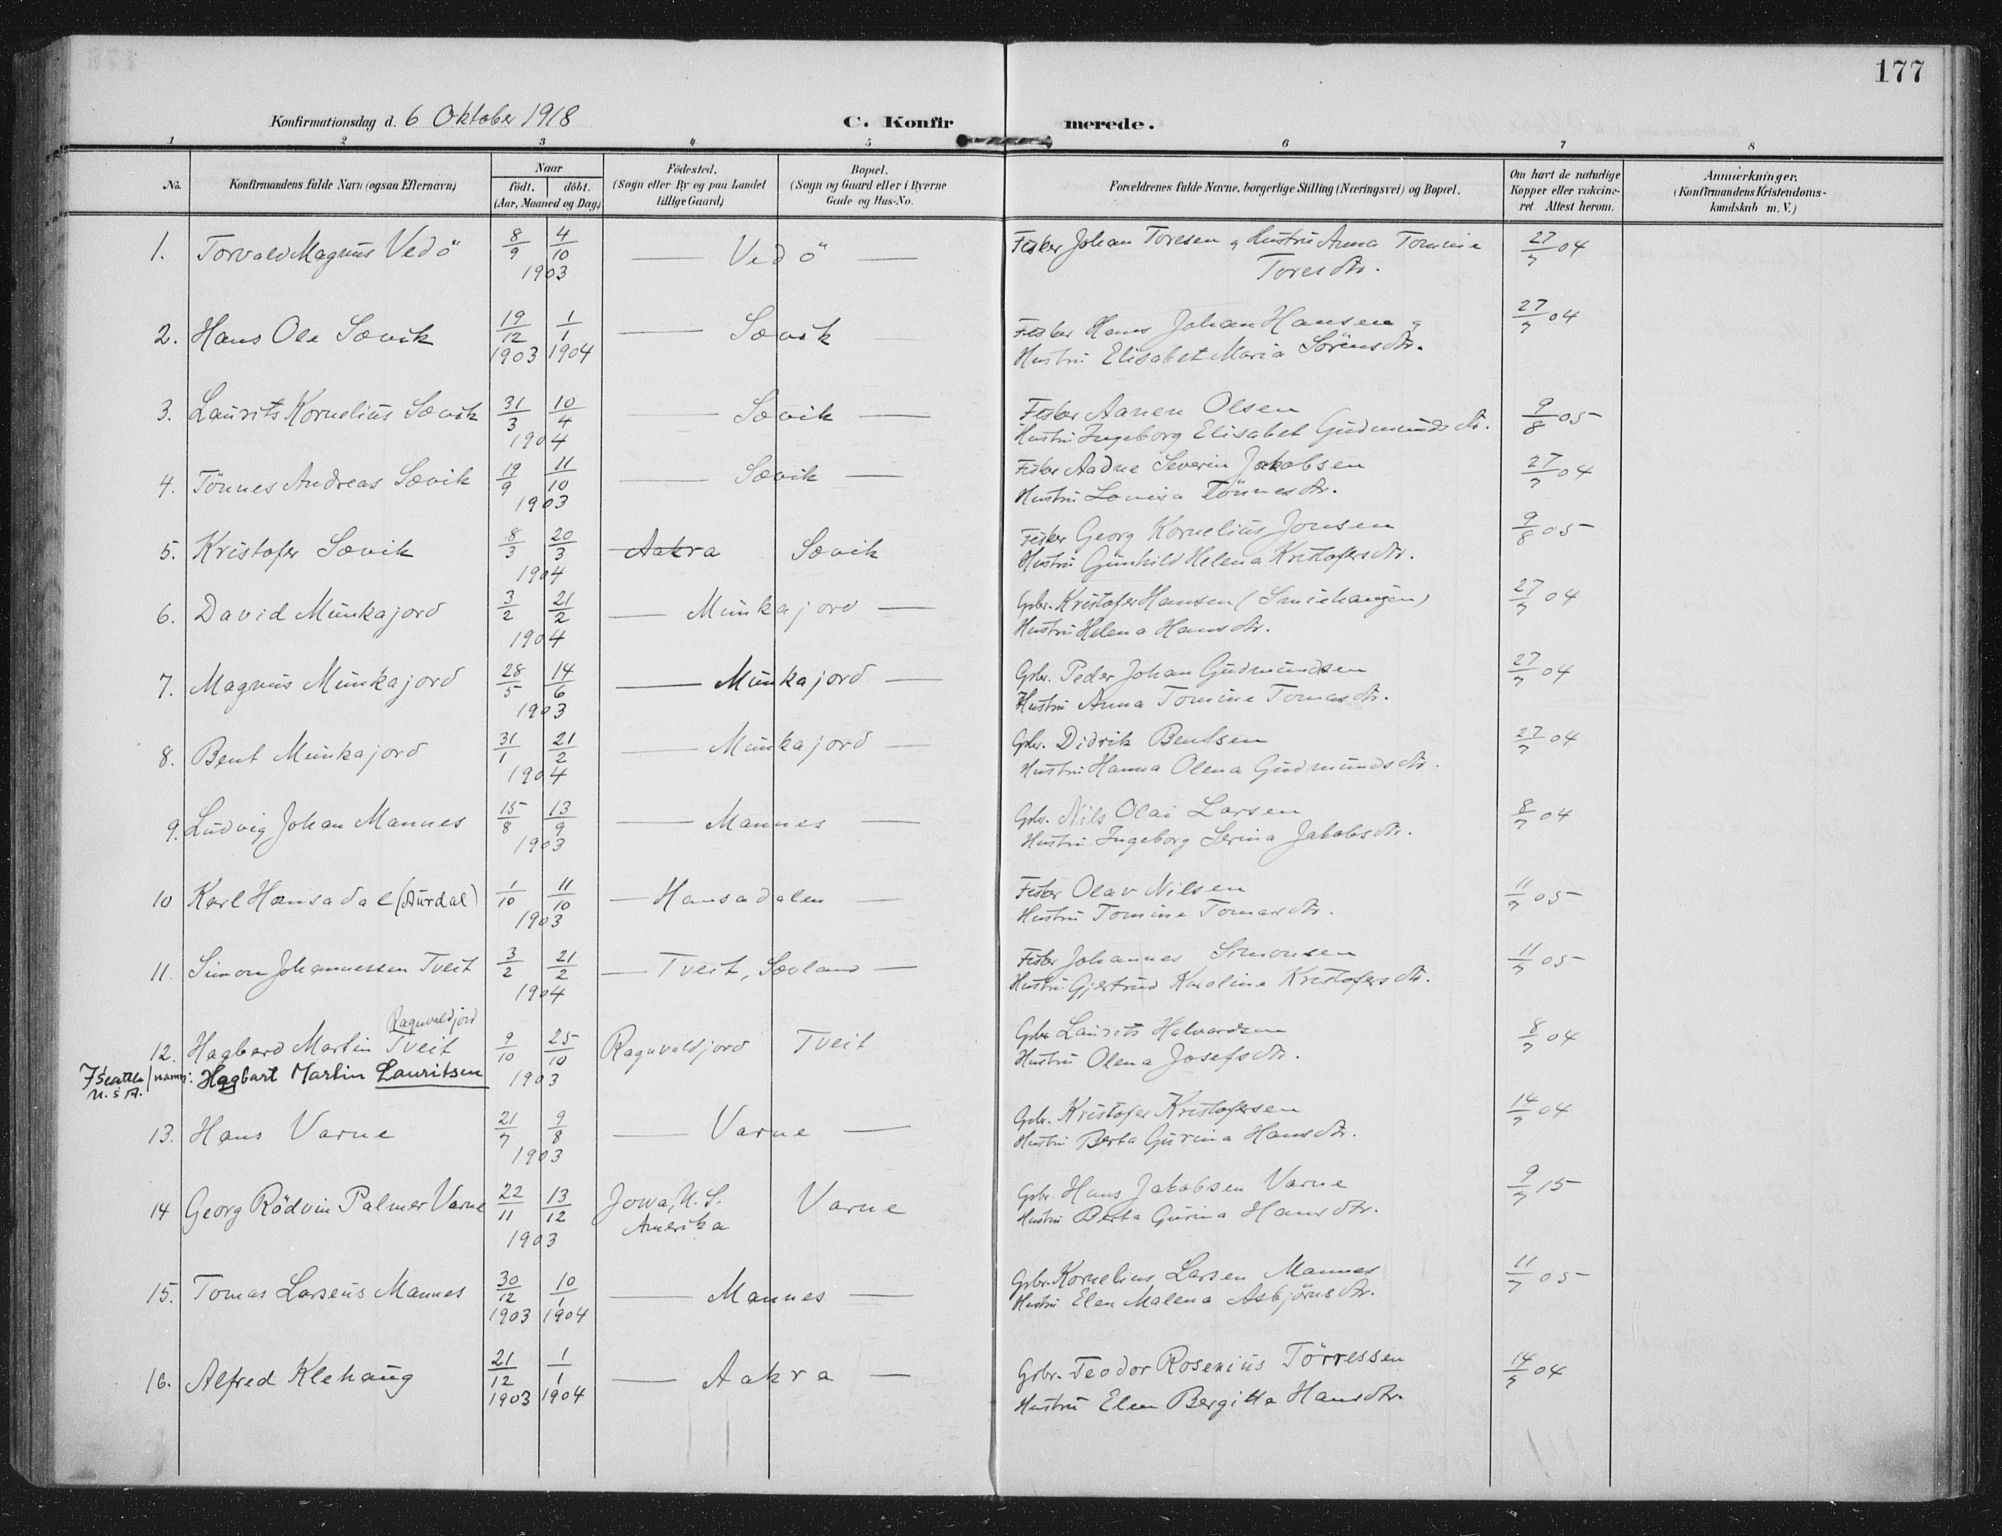 177
Konfirmationsdag d. 6 Oktober 1918 C. Konfirmerede.
1 2 3 4 5 6 7 8
No. Konfirmandens fulde Navn (ogsaa Efternavn) Naar født. døbt. (Aar, Maaned og Dag) Fødested. (Sogn eller By og paa Landet tillige Gaard) Bopæl. (Sogn og Gaard eller i Byerne Gade og Hus-No. Forældrenes fulde Navne, borgerlige Stilling (Næringsvei) og Bopæl. Om havt de naturlige Kopper eller vakcineret. Attest herom. Anmærkninger, (Konfirmandens Kristendomskundskab m. V.)
1. Torvald Magnus Vedö 8/9 4/10 1903 — Vedö — Fisker Johan Toresen og Hustru Anna Tomine Toresdtr. 27/7 04
2. Hans Ole Sævik 19/12 1903 1/1 1904 — Sævik — Fisker Hans Johan Hansen og
Hustru Elisabet Maria Sörensdtr. 27/7 04
3. Laurits Kornelius Sævik 31/3 10/4 1904 — Sævik — Fisker Aanen Olsen
Hustru Ingeborg Elisabet Gudmundsdtr. 9/8 05
4. Tönnes Andreas Sævik 19/9 11/10 1903 — Sævik — Fisker Aadne Severin Jakobsen
Hustru Lovisa Tönnesdtr. 27/7 04
5. Kristofer Sævik 8/3 20/3 1904 Aakra Sævik Fisker Georg Kornelius Jonsen
Hustru Gunhild Helena Kristofersdtr. 9/8 05
6. David Munkajord 3/2 21/2 1904 — Munkajord — Gbr. Kristofer Hansen (Smiehaugen)
Hustru Helena Hansdtr. 27/7 04
7. Magnus Munkajord 28/5 14/6 1903 — Munkajord — Gbr. Peder Johan Gudmundsen
Hustru Anna Tomine Tomasdtr. 27/7 04
8. Bent Munkajord 31/1 21/2 1904 — Munkajord — Gbr. Didrik Bentsen
Hustru Hanna Olena Gudmundsdtr. 27/7 04
9. Ludvig Johan Mannes 15/8 13/9 1903 — Mannes — Gbr. Nils Olai Larsen
Hustru Ingeborg Serina Jakobsdtr. 8/7 04
10 Karl Hansadal (Aurdal) 1/10 11/10 1903 — Hansadalen — Fisker Olav Nilsen
Hustru Tomine Tomasdtr. 11/7 05
11. Simon Johannessen Tveit 3/2 21/2 1904 — Tveit, Sævland — Fisker Johannes Simonsen
Hustru Gjertrud Karoline Kristofersdtr. 11/7 05
Ragnvaldjord
12. Hagbard Martin Tveit 9/10 25/10 1903 Ragnvaldjord Tveit Gbr. Laurits Halvardsen
Hustru Olena Josefsdtr. 8/7 04
Seattle U.S.A. / namn: Hagbart Martin Lauritsen
13. Hans Varne 21/7 9/8 1903 — Varne — Gbr. Kristofer Kristofersen
Hustru Berta Gurina Hansdtr. 14/7 04
14 Georg Rödvin Palmer Varne 22/11 13/12 1903 Jowa, U.S. Amerika Varne Gbr. Hans Jakobsen Varne
Hustru Berta Gurina Hansdtr. 9/7 15
15. Tomas Larseus Mannes 30/12 1903 10/1 1904 — Mannes — Gbr. Kornelius Larsen Mannes
Hustru Elen Malena Asbjörnsdtr. 11/7 05
16. Alfred Klehaug 21/12 1903 1/1 1904 — Aakra — Gbr. Teodor Rosenius Törressen
Hustru Elen Bergitte Hansdtr. 14/7 04